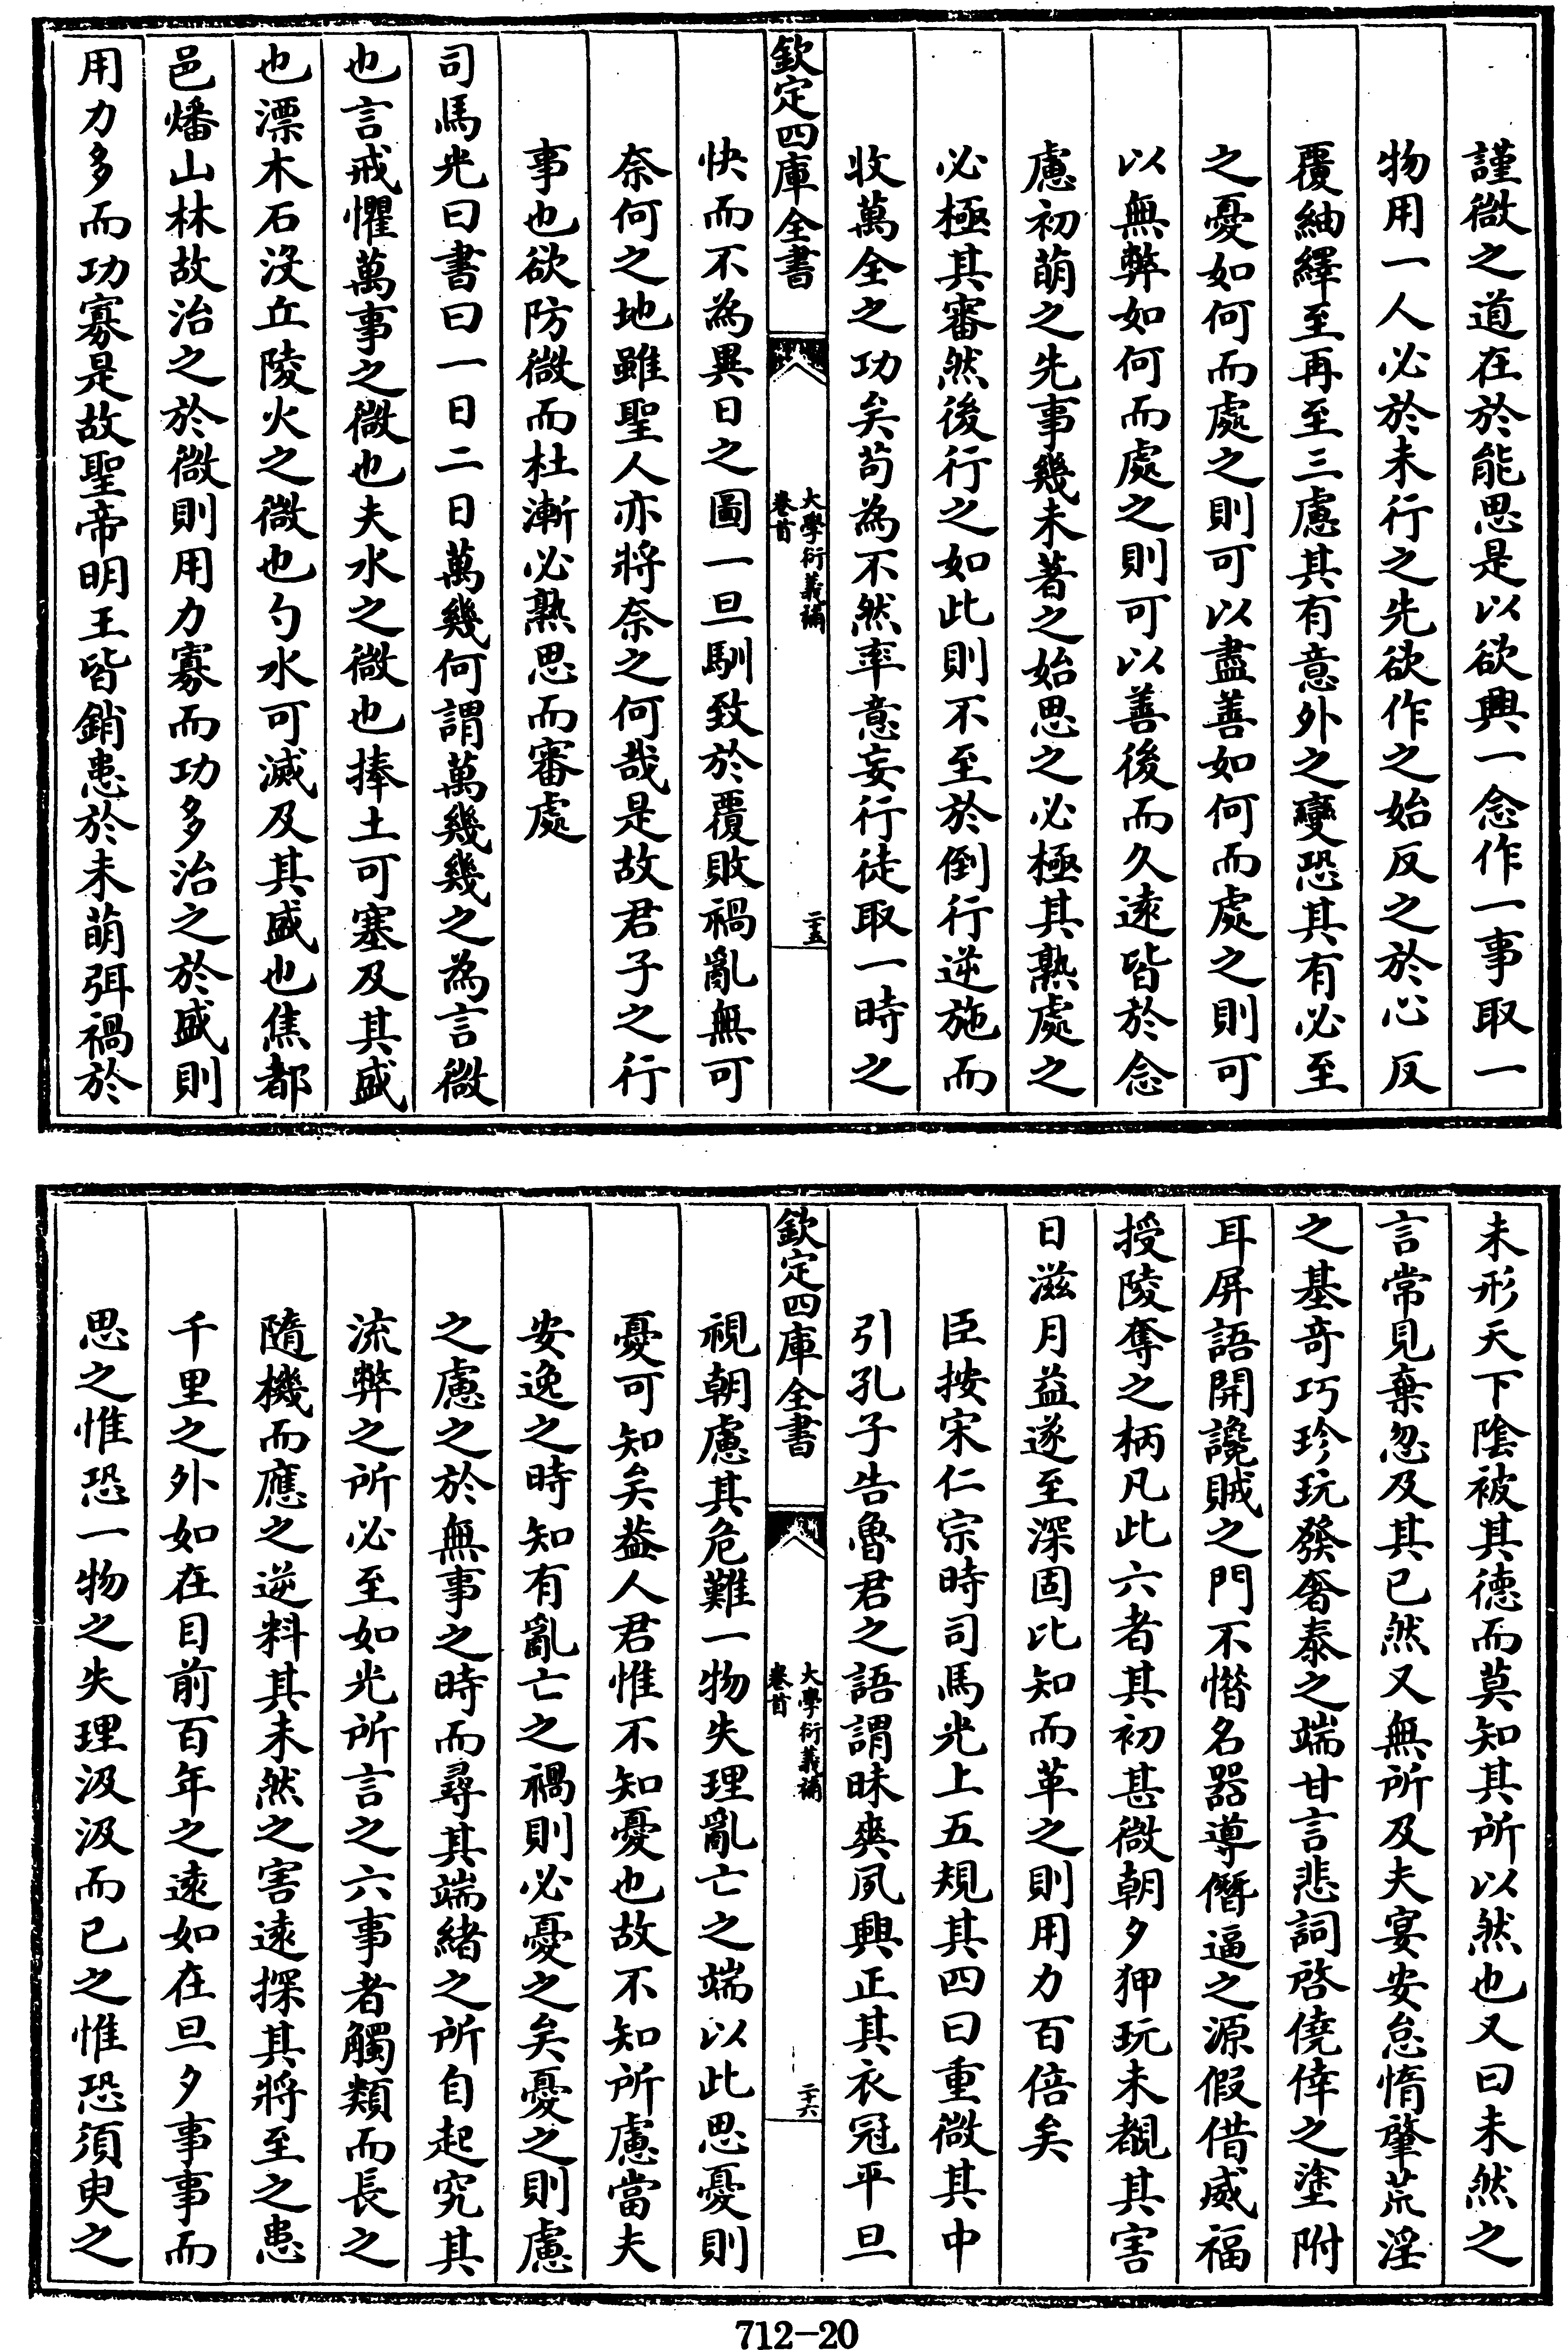 謹微之道在於能思是以欲興一念作一事取一
物用一人必於未行之先欲作之始反之於心反
覆紬繹至再至三慮其有意外之變恐其有必至
之憂如何而處之則可以盡善如何而處之則可
以無弊如何而處之則可以善後而久遠皆於念
慮初萌之先事幾未著之始思之必極其熟處之
必極其審然後行之如此則不至於倒行逆施而
收萬全之功矣苟為不然率意妄行徒取一時之
欽定四庫全書
大學衍義補
卷首
二十五
快而不為異日之圖一旦馴致於覆敗禍亂無可
奈何之地雖聖人亦將奈之何哉是故君子之行
事也欲防微而杜漸必熟思而審處
司馬光曰書曰一日二日萬幾何謂萬幾幾之為言微
也言戒懼萬事之微也夫水之微也捧土可塞及其盛
也漂木石沒丘陵火之微也勺水可滅及其盛也焦都
邑燔山林故治之於微則用力寡而功多治之於盛則
用力多而功寡是故聖帝明王皆銷患於未萌弭禍於
未形天下陰被其德而莫知其所以然也又曰未然之
言常見棄忽及其已然又無所及夫宴安怠惰肇荒淫
之基奇巧珍玩發奢泰之端甘言悲詞啓僥倖之塗附
耳屏語開讒賊之門不惜名器導僭逼之源假借威福
授陵奪之柄凡此六者其初甚微朝夕狎玩未覩其害
日滋月益遂至深固比知而革之則用力百倍矣
臣按宋仁宗時司馬光上五規其四曰重微其中
引孔子告魯君之語謂昧爽夙興正其衣冠平旦
欽定四庫全書
大學衍義補
卷首
二十六
視朝慮其危難一物失理亂亡之端以此思憂則
憂可知矣葢人君惟不知憂也故不知所慮當夫
安逸之時知有亂亡之禍則必憂之矣憂之則慮
之慮之於無事之時而尋其端緒之所自起究其
流弊之所必至如光所言之六事者觸類而長之
隨機而應之逆料其未然之害遠探其將至之患
千里之外如在目前百年之遠如在旦夕事事而
思之惟恐一物之失理汲汲而已之惟恐須臾之
712-20